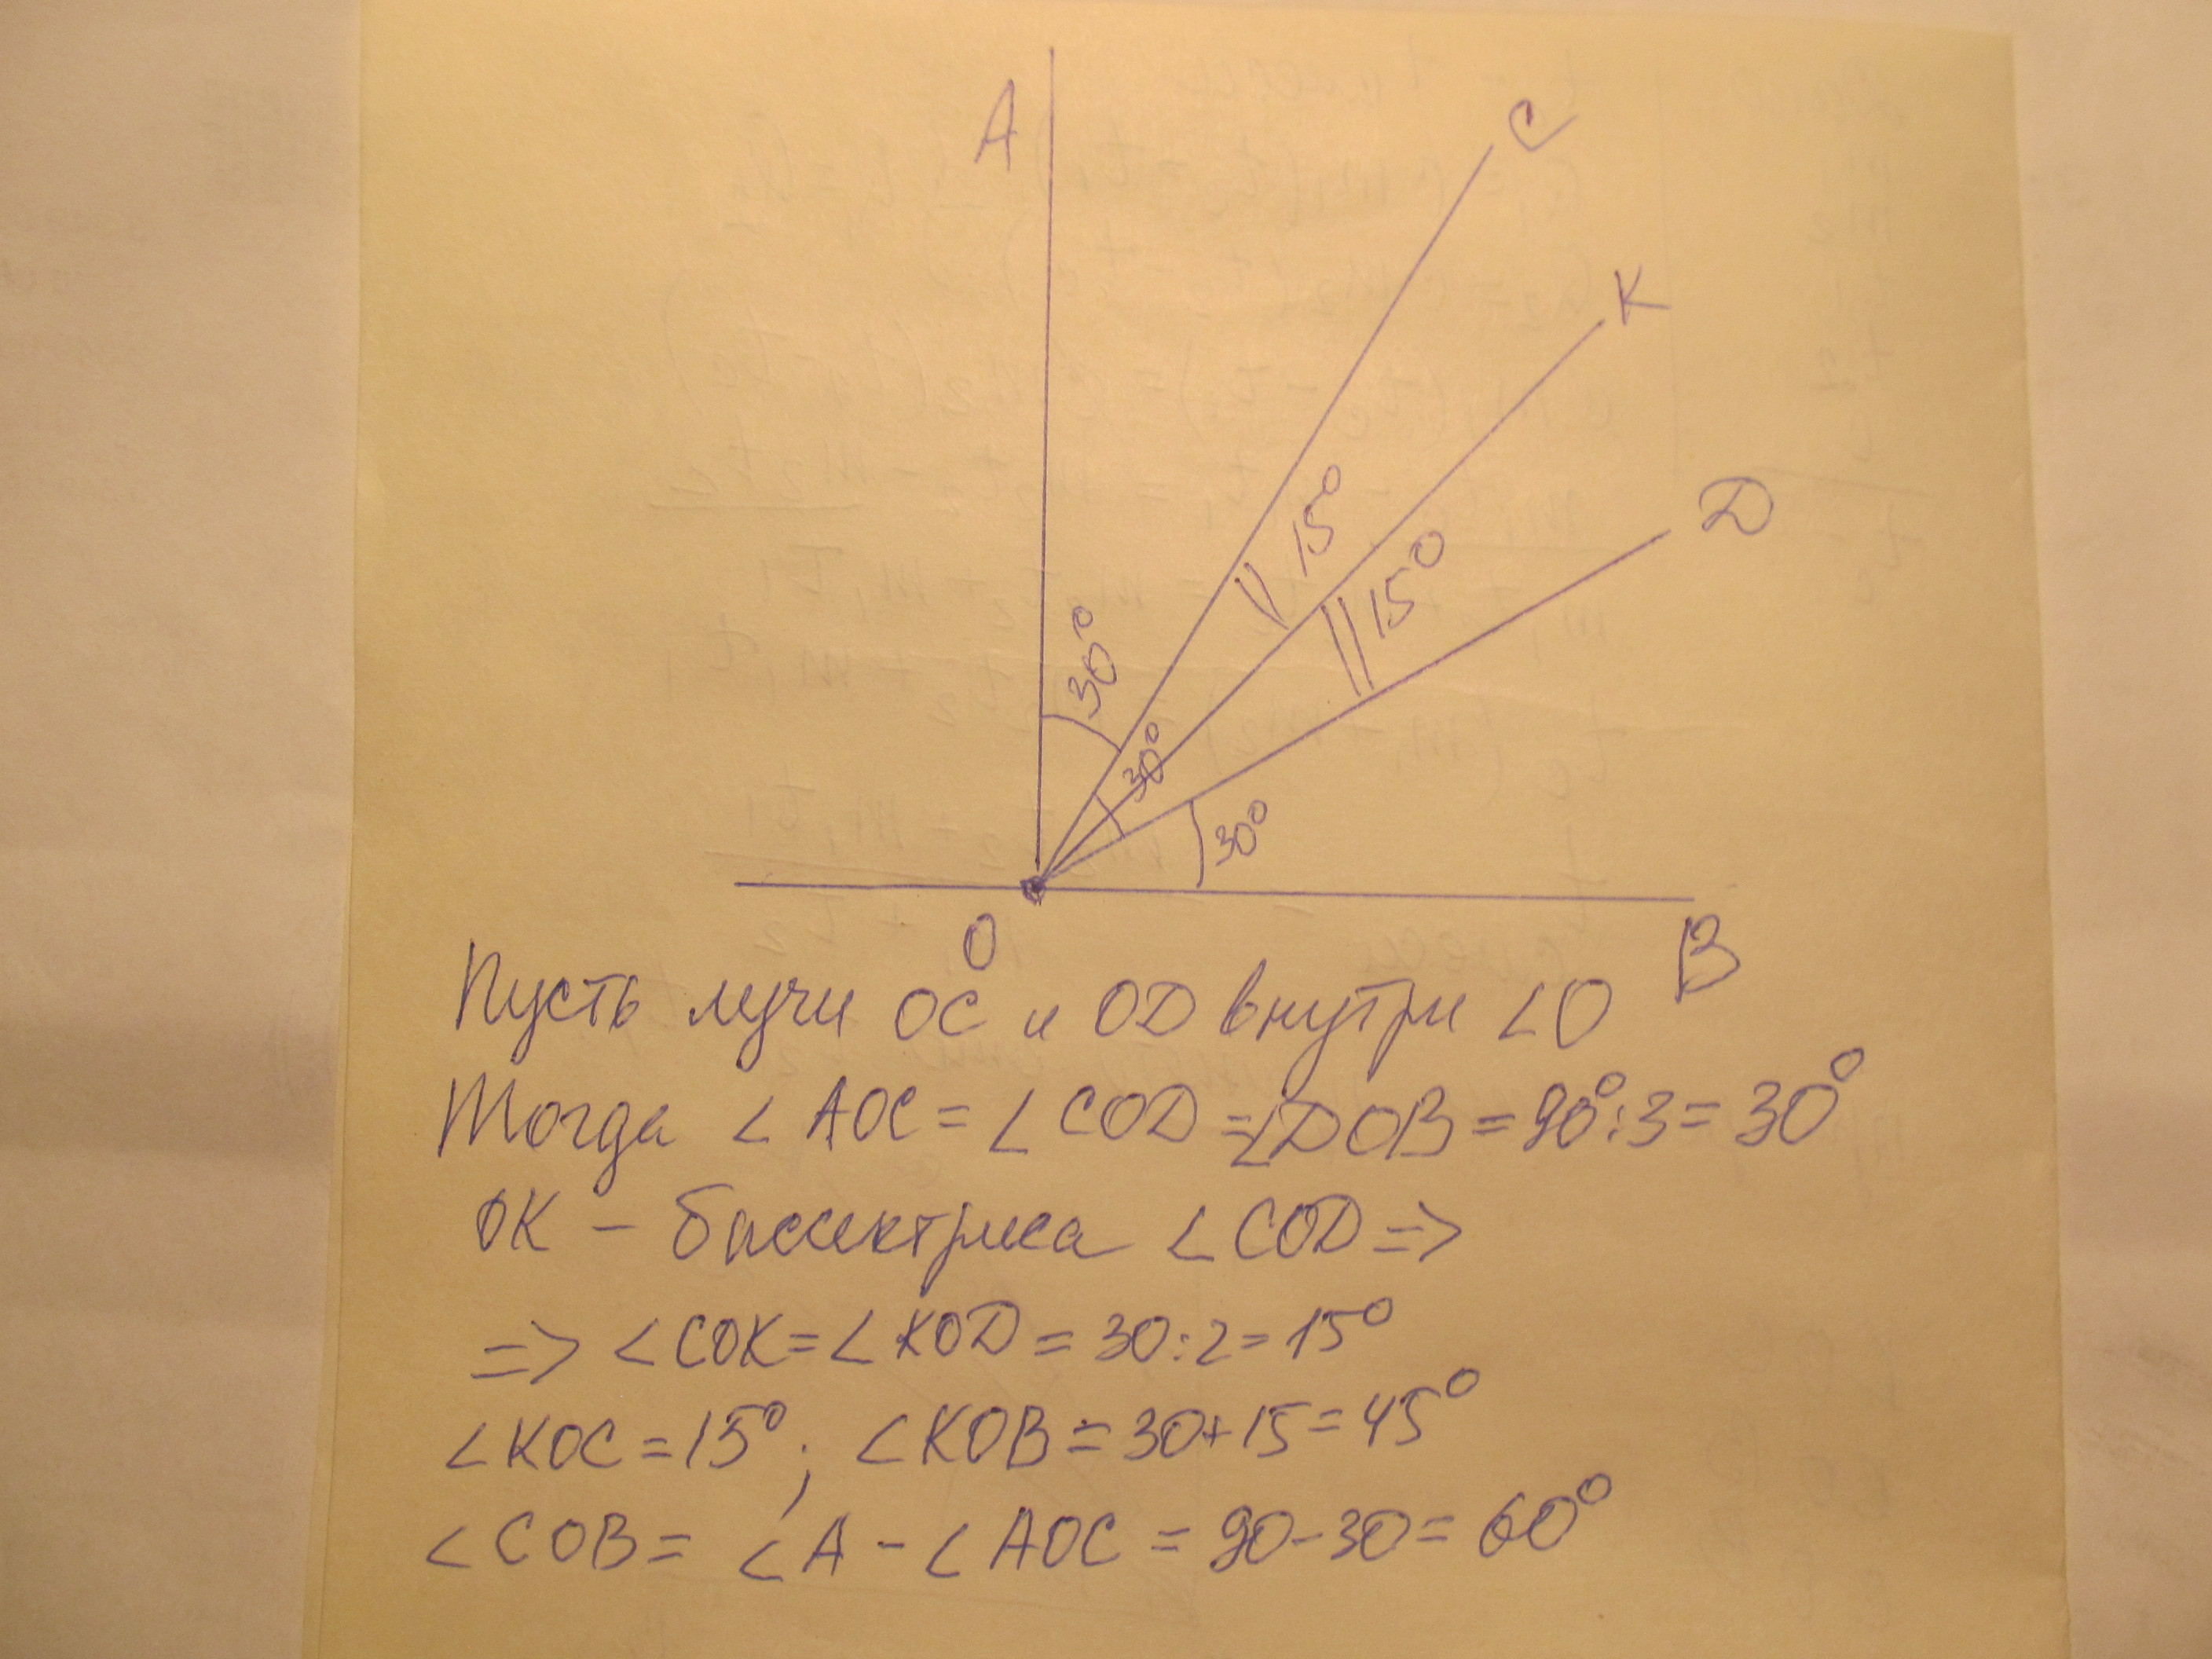 A
C
K
D
15°
15°
30°
30°
30°
O
B
Пусть лучи OC и OD внутри ∠O
Тогда ∠AOC = ∠COD = ∠DOB = 90° : 3 = 30°
OK – биссектриса ∠COD =>
=> ∠COK = ∠KOD = 30 : 2 = 15°
∠KOC = 15°; ∠KOB = 30 + 15 = 45°
∠COB = ∠A – ∠AOC = 90 – 30 = 60°